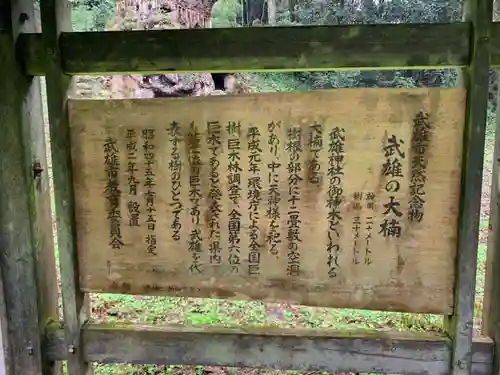 武雄市天然記念物
武雄の大楠
幹周 二十メートル
樹高 三十メートル
武雄神社の御神木といわれる
大楠である。
樹根の部分に十二畳敷の空洞
があり、中に天神様を祀る。
平成元年、環境庁による全国巨
樹・巨木林調査で、全国第六位の
巨木であると発表された。県内
の巨木であり、武雄を代
表する樹のひとつである
昭和四十五年七月十五日 指定
平成二年九月 設置
武雄市教育委員会